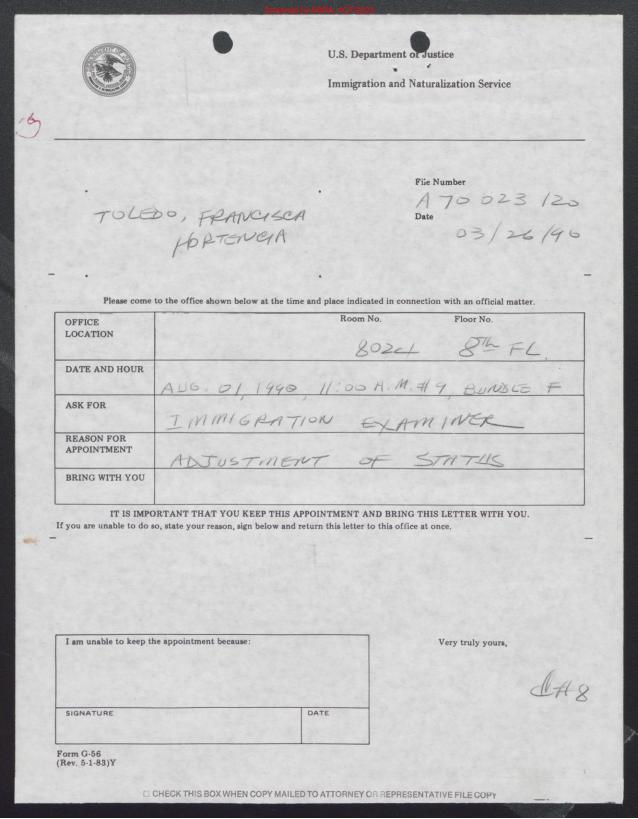 U.S. Department of Justice
Immigration and Naturalization Service
File Number
A 70 023 120
Date
03/26/90
TOLEDO, FRANCISCA
HORTENCIA
Please come to the office shown below at the time and place indicated in connection with an official matter.
OFFICE LOCATION
Room No. Floor No.
8024 8th FL.
DATE AND HOUR
AUG. 01, 1990, 11:00 A.M. #9, BUNDLE F
ASK FOR
IMMIGRATION EXAMINER
REASON FOR APPOINTMENT
ADJUSTMENT OF STATUS
BRING WITH YOU
IT IS IMPORTANT THAT YOU KEEP THIS APPOINTMENT AND BRING THIS LETTER WITH YOU.
If you are unable to do so, state your reason, sign below and return this letter to this office at once.
I am unable to keep the appointment because:
Very truly yours,
SIGNATURE
DATE
Form G-56
(Rev. 5-1-83)Y
CHECK THIS BOX WHEN COPY MAILED TO ATTORNEY OR REPRESENTATIVE FILE COPY